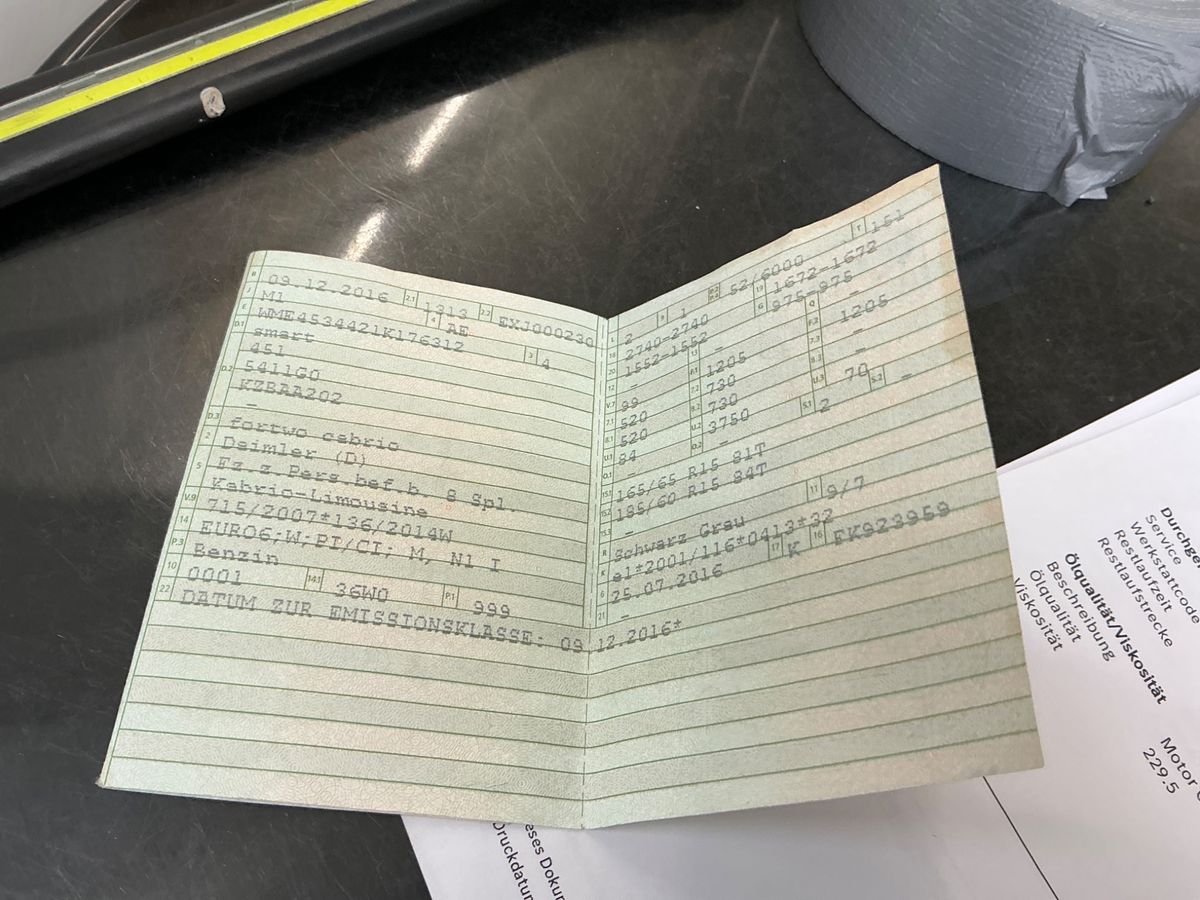 B 09.12.2016 2.1 1313 2.2 EXJ000230
J M1 4 AE
E WME4534421K176312 3 4
D.1 smart
D.2 451
5411G0
KZBAA202
–
D.3 fortwo cabrio
2 Daimler (D)
5 Fz.z.Pers.bef.b. 8 Spl.
Kabrio-Limousine
V.9 715/2007*136/2014W
14 EURO6;W;PI/CI; M, N1 I
P.3 Benzin
10 0001 14.1 36W0 P.1 999
22 DATUM ZUR EMISSIONSKLASSE: 09.12.2016*
L 2 9 1 P.2 P.4 52/6000 T 151
18 2740-2740 19 1672-1672
20 1552-1552 G 975-975
12 – 13 – Q –
V.7 99 F.1 1205 F.2 1205
7.1 520 7.2 730 7.3 –
8.1 520 8.2 730 8.3 –
U.1 84 U.2 3750 U.3 70
O.1 – O.2 – S.1 2 S.2 –
15.1 165/65 R15 81T
15.2 185/60 R15 84T
15.3 –
R Schwarz Grau 11 9/7
K e1*2001/116*0413*32
6 25.07.2016 17 K 16 FK923959
21 –
Service
Werkstattcode
Restlaufzeit
Restlaufstrecke
Ölqualität/Viskosität
Beschreibung
Ölqualität
Viskosität
Motor
229.5